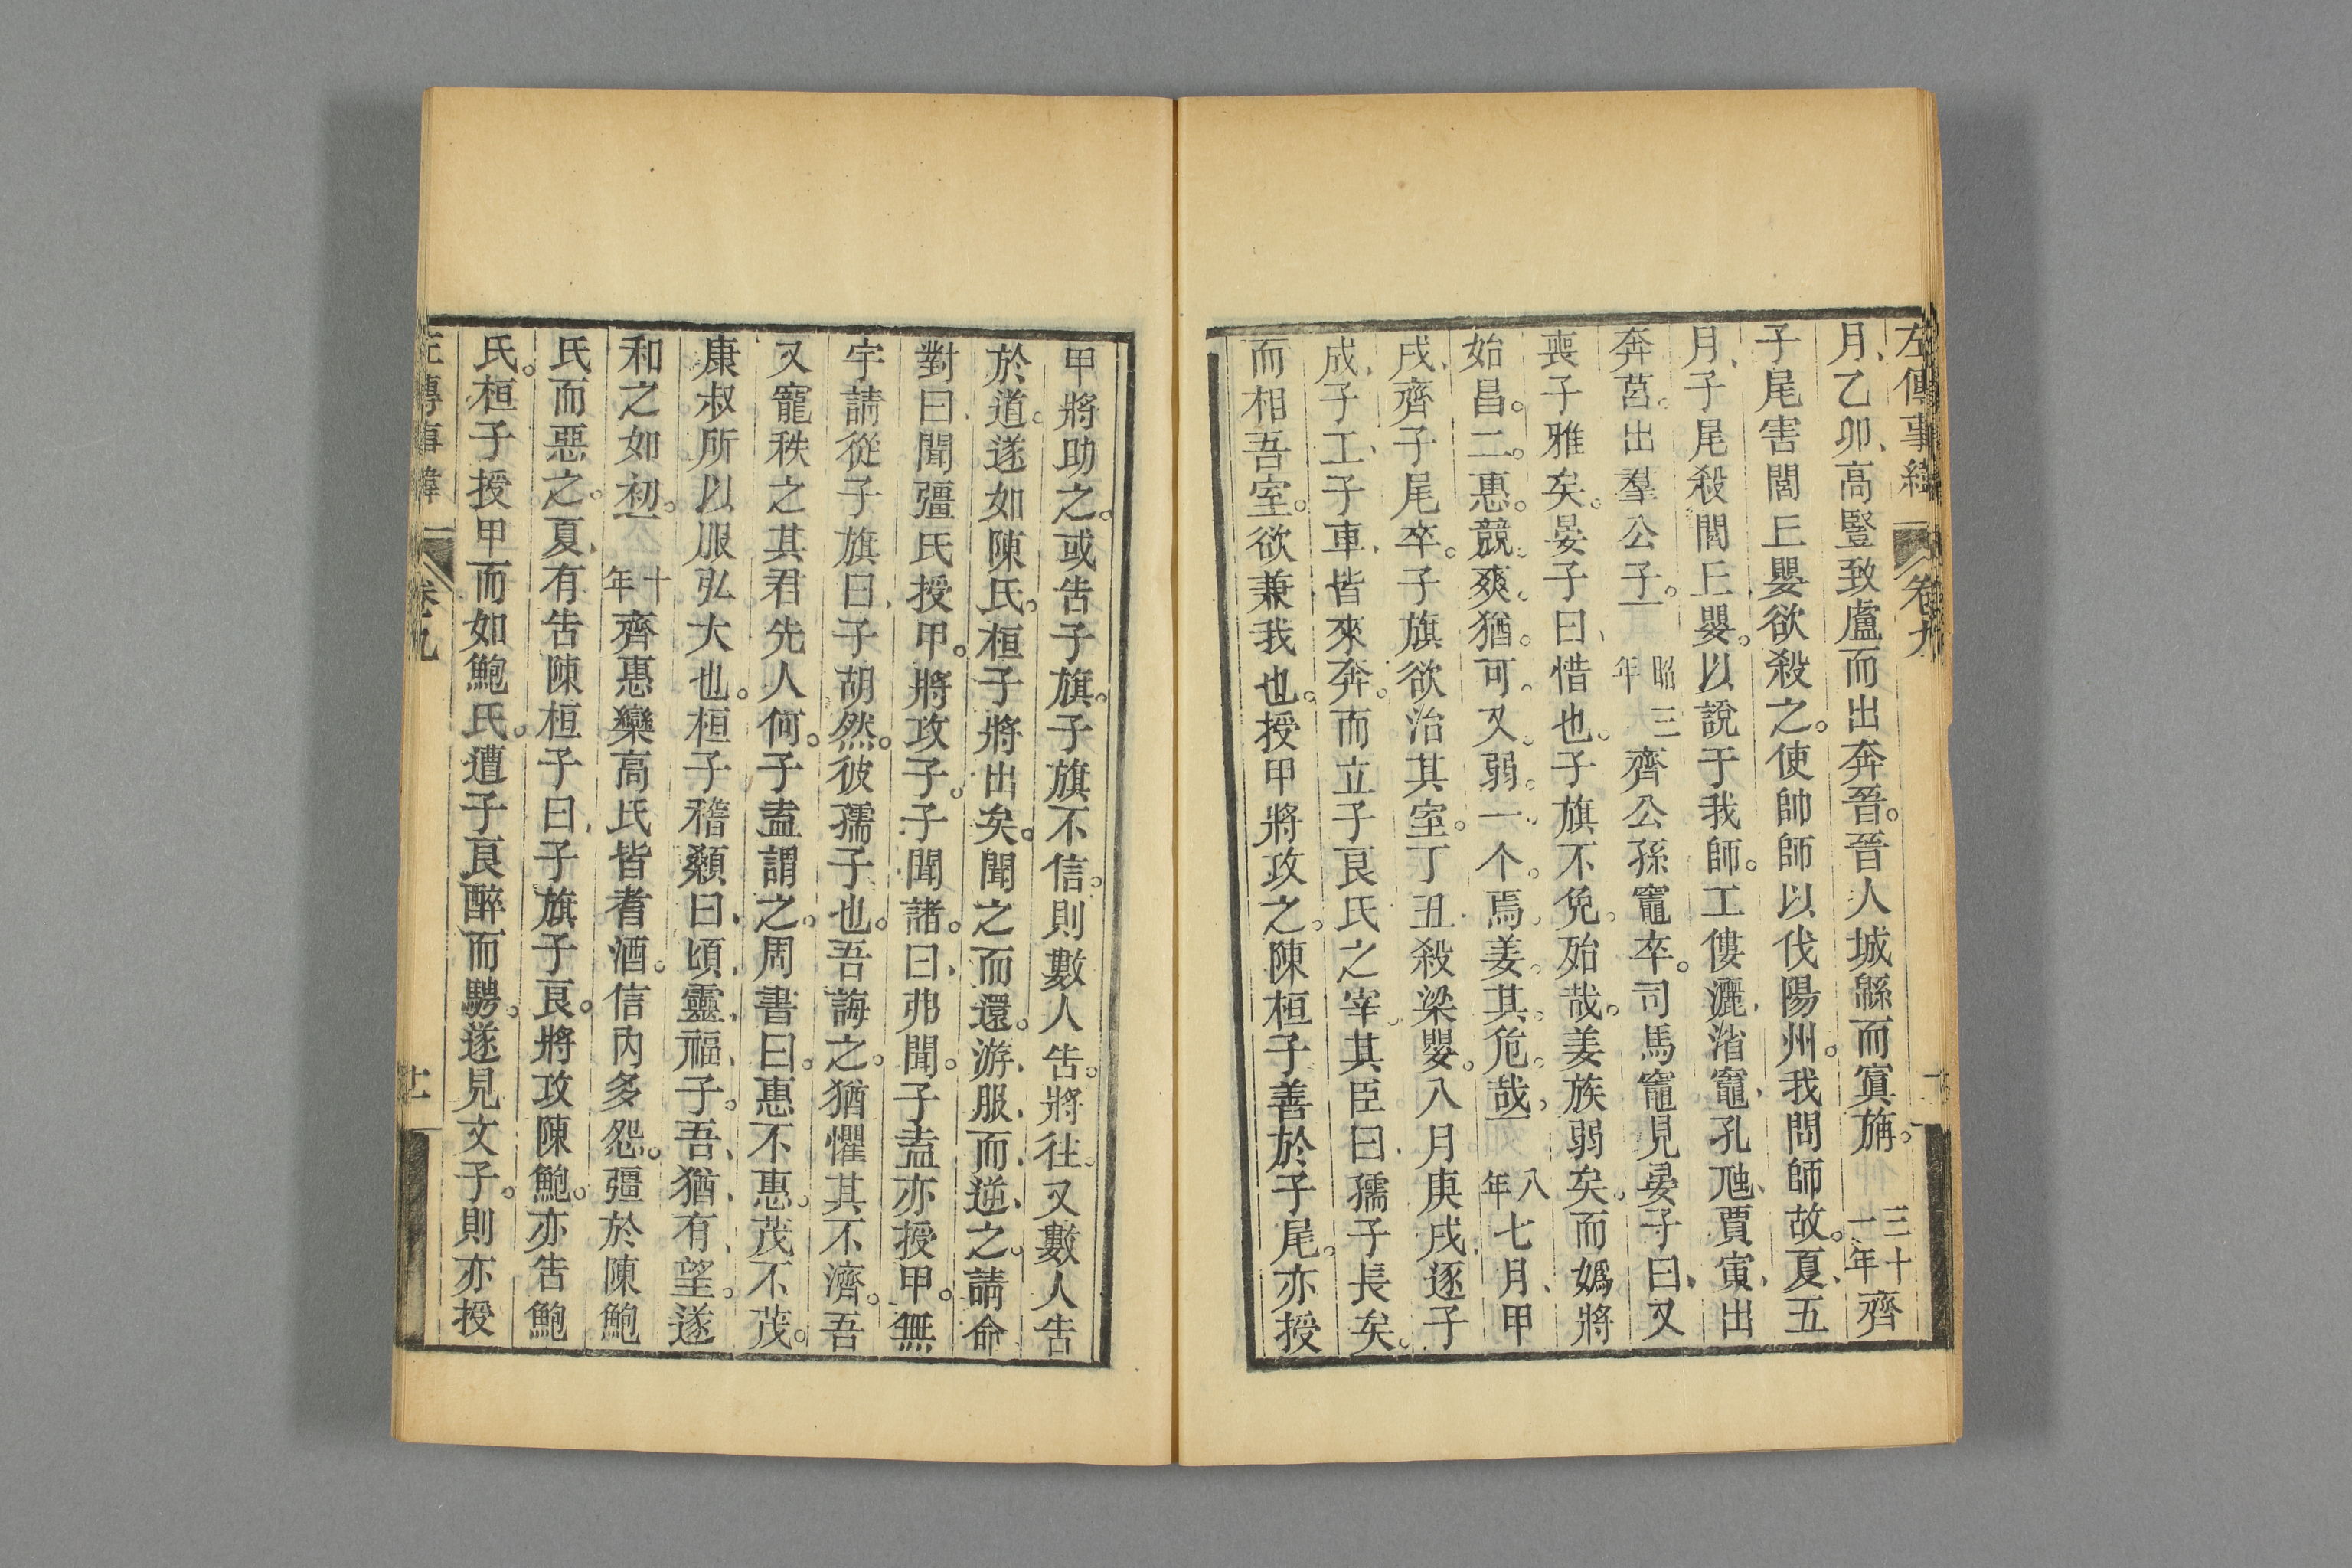 左傳事緯 卷九
月、乙卯、高豎致盧而出奔晉。晉人城緜而寘旃。三十一年齊
子尾害閭丘嬰欲殺之。使帥師以伐陽州。我問師故。夏、五
月、子尾殺閭丘嬰。以說于我師。工僂灑、渻竈、孔虺、賈寅、出
奔莒。出羣公子。昭三年齊公孫竈卒。司馬竈見晏子曰、又
喪子雅矣。晏子曰、惜也。子旗不免。殆哉。姜族弱矣。而嬀將
始昌。二。惠。競。爽。猶。可。又。弱。一。个。焉。姜。其。危。哉。八年七月、甲
戌、齊子尾卒。子旗欲治其室。丁丑、殺梁嬰。八月庚戌、逐子
成、子工、子車、皆來奔。而立子良氏之宰、其臣曰、孺子長矣。
而相吾室。欲兼我也。授甲將攻之。陳桓子善於子尾。亦授
甲將助之。或告子旗。子旗不信。則數人告。將往。又數人告
於道。遂如陳氏。桓子將出矣。聞之而還。游、服、而、逆、之。請命
對曰、聞彊氏授甲。將攻子。子聞諸。曰、弗聞。子盍亦授甲。無
宇請從子旗曰、子胡然。彼孺子也。吾誨之。猶懼其不濟。吾
又寵秩之其君先人何。子盍謂之。周書曰。惠不惠。茂不茂。
康叔所以服弘大也。桓子稽顙曰、頃、靈、福、子。吾、猶、有、望。遂
和之如初。十年齊惠欒高氏皆耆酒。信內多怨。彊於陳鮑
氏而惡之。夏、有告陳桓子曰、子旗子良。將攻陳鮑。亦告鮑
氏。桓子授甲而如鮑氏。遭子良醉而騁。遂見文子。則亦授
左傳事緯 卷九 十一